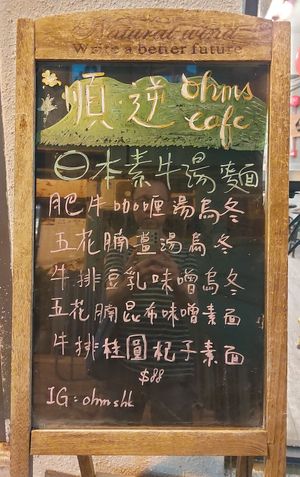 Natural wind
Write a better future
順·逆 ohms cafe
日本素牛湯麵
肥牛咖喱湯烏冬
五花腩薑湯烏冬
牛排豆乳味噌烏冬
五花腩昆布味噌素面
牛排桂圓杞子素面
$88
IG: ohmshk